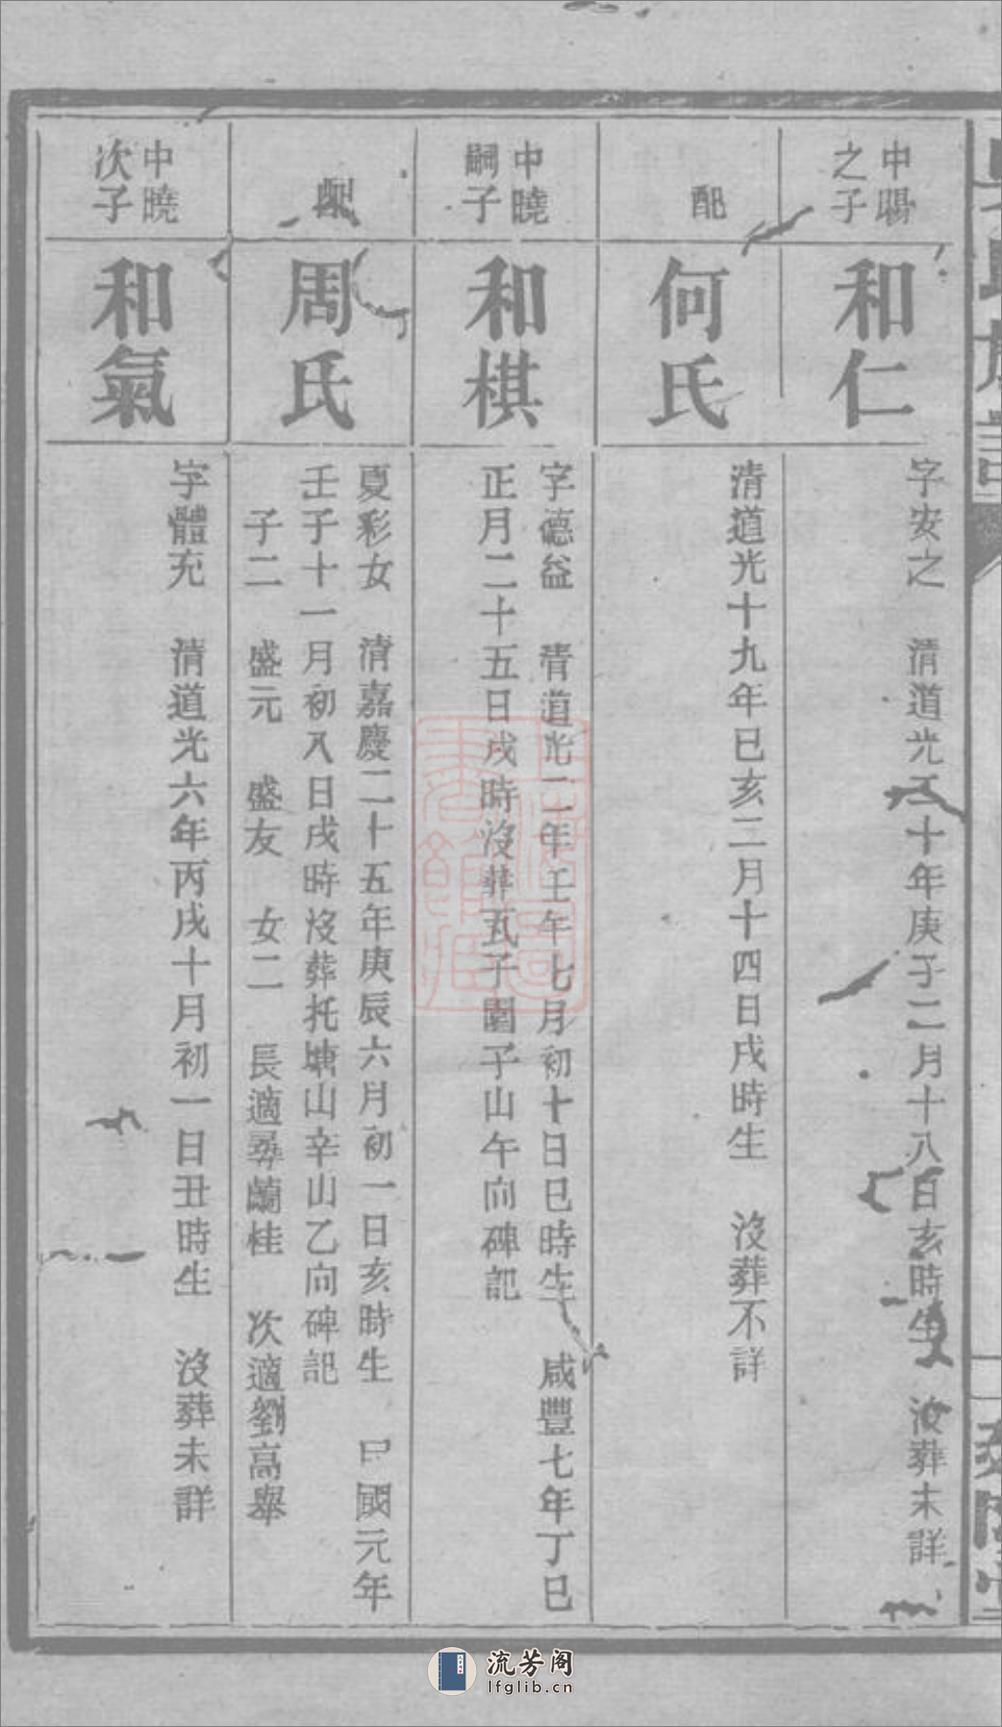 中暘
之子
和仁
字安之 清道光二十年庚子二月十八日亥時生 沒葬未詳
配
何氏
清道光十九年已亥二月十四日戌時生 沒葬不詳
中曉
嗣子
和棋
字德益 清道光二年壬午七月初十日巳時生 咸豐七年丁巳
正月二十五日戌時沒葬瓦子園子山午向碑記
配
周氏
夏彩女 清嘉慶二十五年庚辰六月初一日亥時生 民國元年
壬子十一月初八日戌時沒葬托塘山辛山乙向碑記
子二 盛元 盛友 女二 長適尋蘭桂 次適劉高舉
中曉
次子
和氣
字體充 清道光六年丙戌十月初一日丑時生 沒葬未詳
流芳阁
lfglib.cn